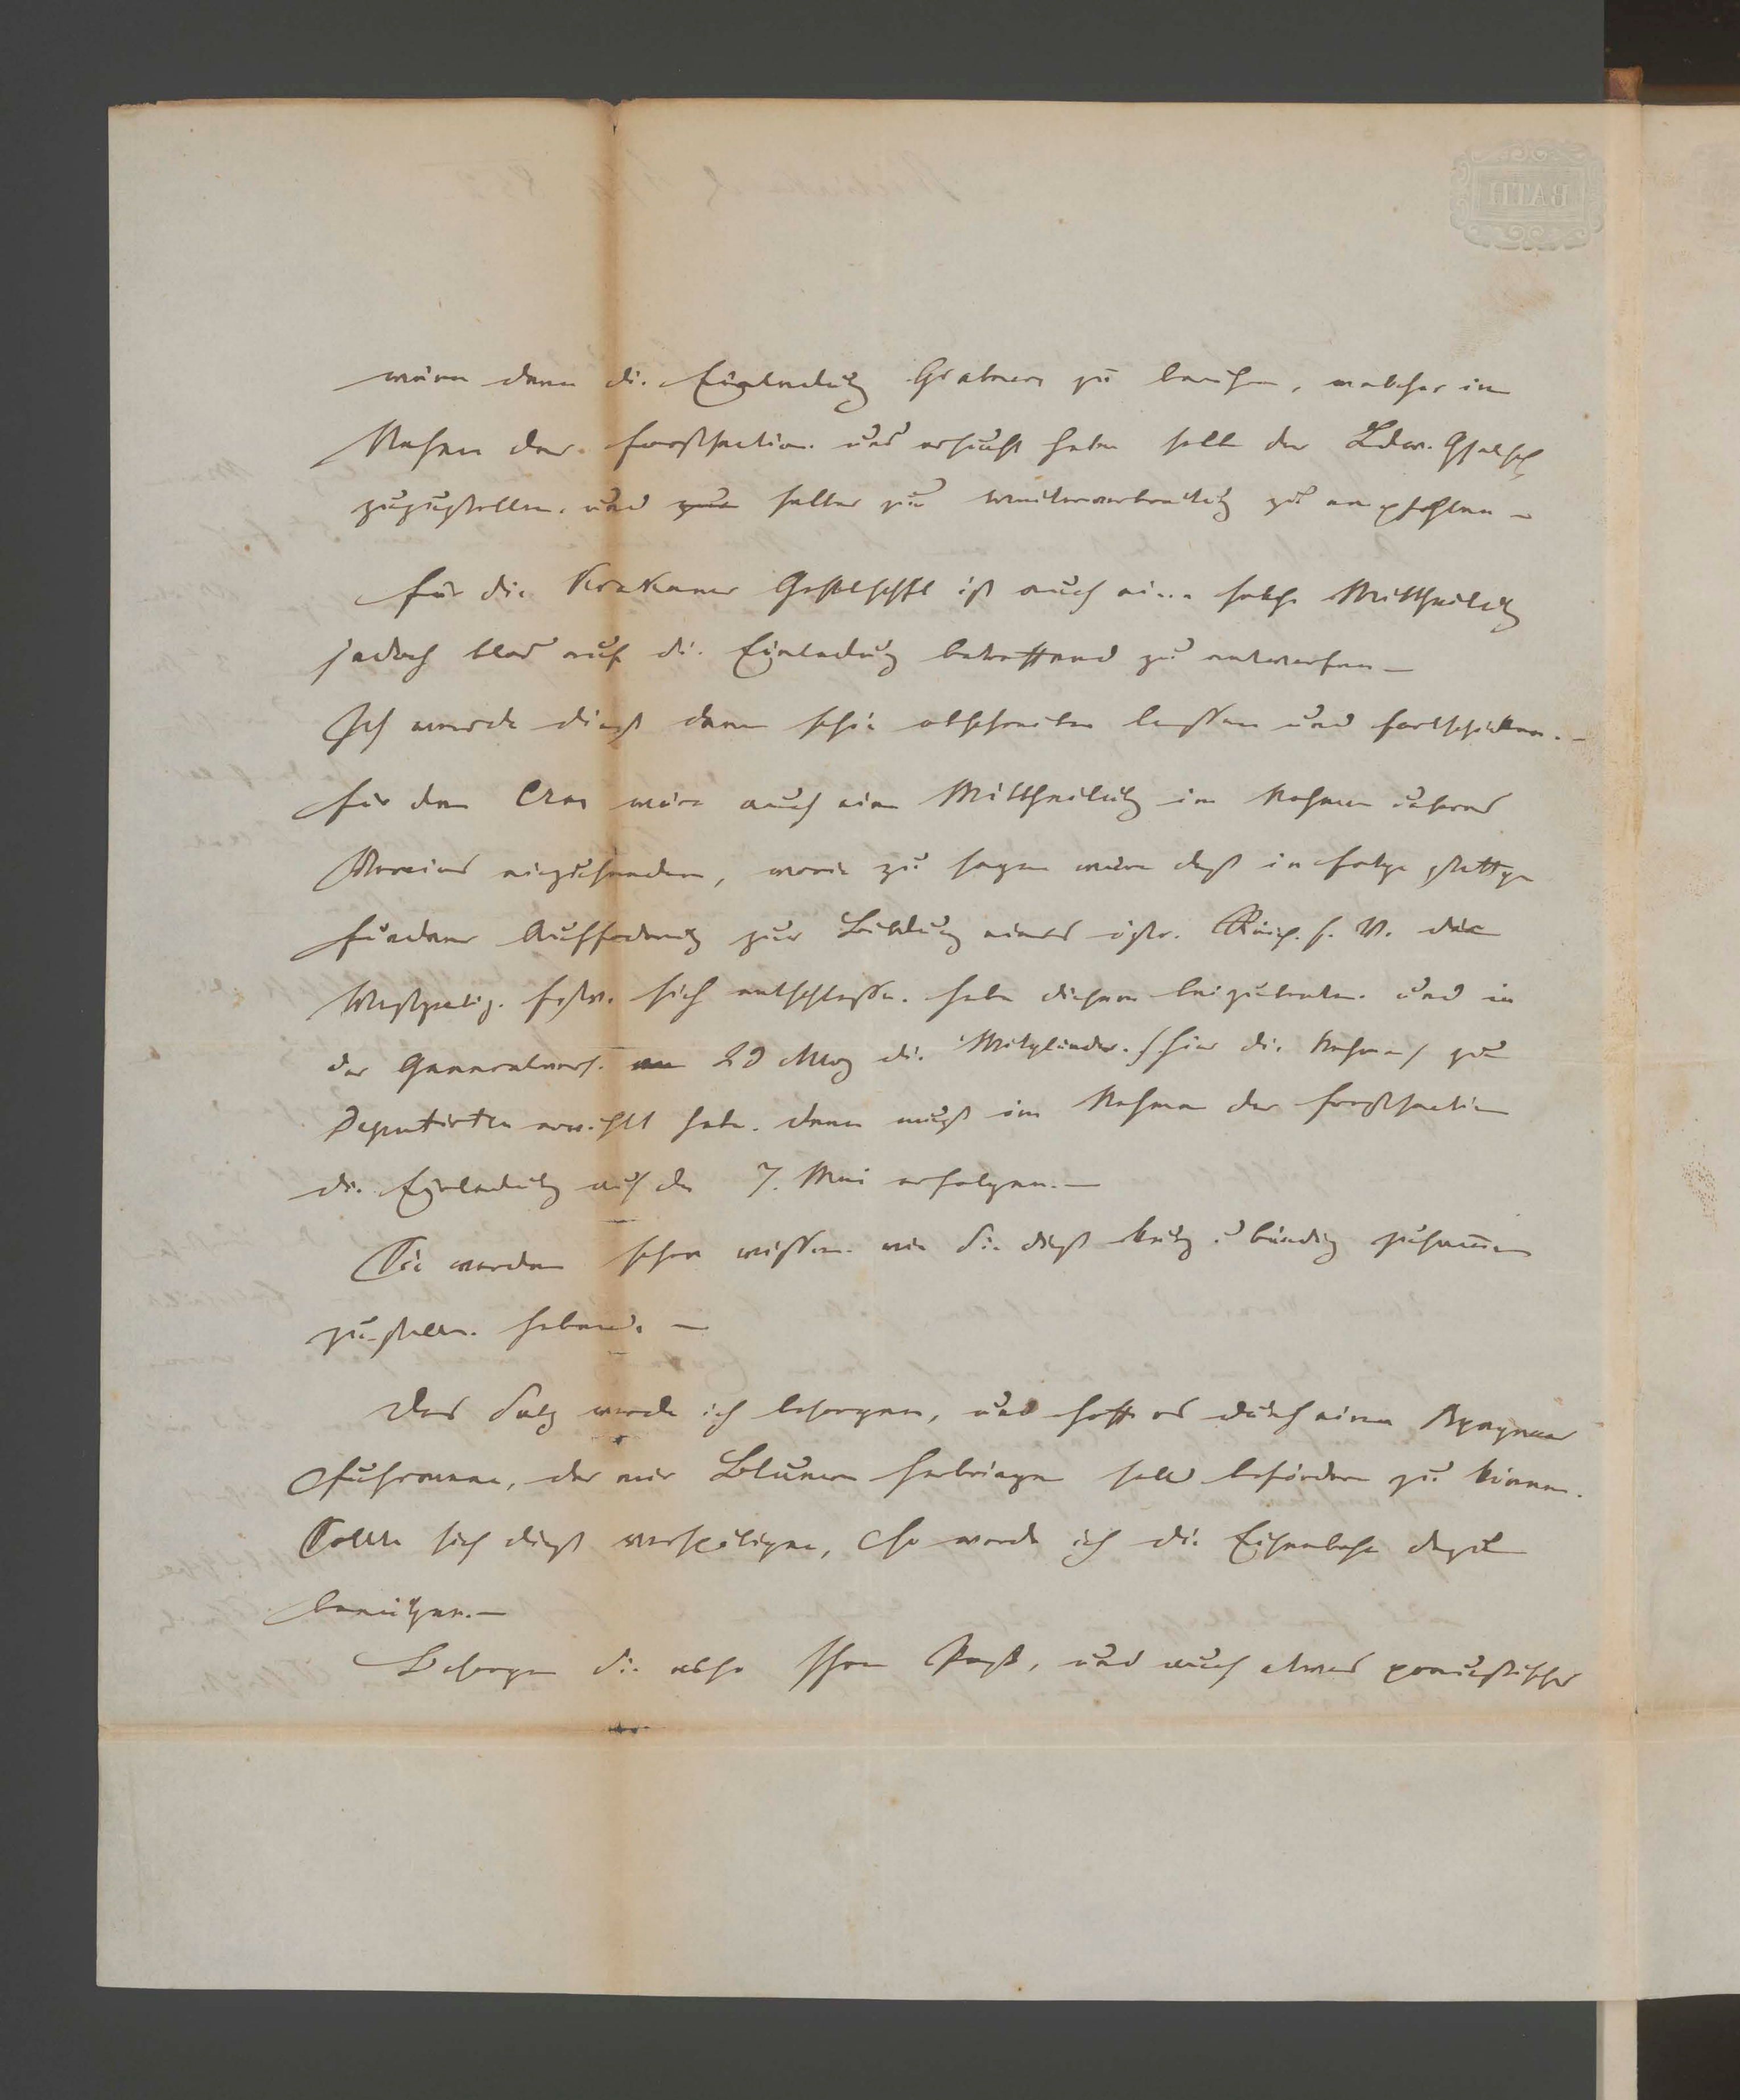 wäre dann die Einladung Grabners zu berufen, welcher im
Nahmen der Forstsection uns ersucht haben soll der Ldw. Gselsch
zuzustellen und selber zur Weiterverbreitung zu empfehlen –
Für die Krakauer Gesellschft ist auch eine solche Mittheilung
jedoch blos auf die Einladung betreffend zu entwerfen –
Ich werde dieß dann schön abschreiben lassen und fortschicken. –
Für den Czas wäre auch eine Mittheilung im Nahmen unseres
Vereins einzusenden, worin zu sagen wäre daß in Folge stattge
fundener Aufforderung zur Bildung eines östr. Reich. f. V. der
Westgaliz. Forstv. sich entschlossen habe diesem beizutreten und in
der Generalvers. 29 März die Mitglieder (hier die Nahmen) zu
Deputirten erwählt habe. dann muß im Nahmen der Forstsection
die Einladung auf den 7. Mai erfolgen. –
Sie werden schon wissen wie Sie dieß kurz u bündig zusammen
zustellen haben. –
Das Salz werde ich besorgen, und hoffe es durch einen
Fuhrmann, der mir Blumen herbringen soll befördern zu können.
Sollte sich dieß verspätigen, so werde ich die Eisenbahn dazu
benützen. –
Besorgen Sie also schon Post, und auch etwas
BATH